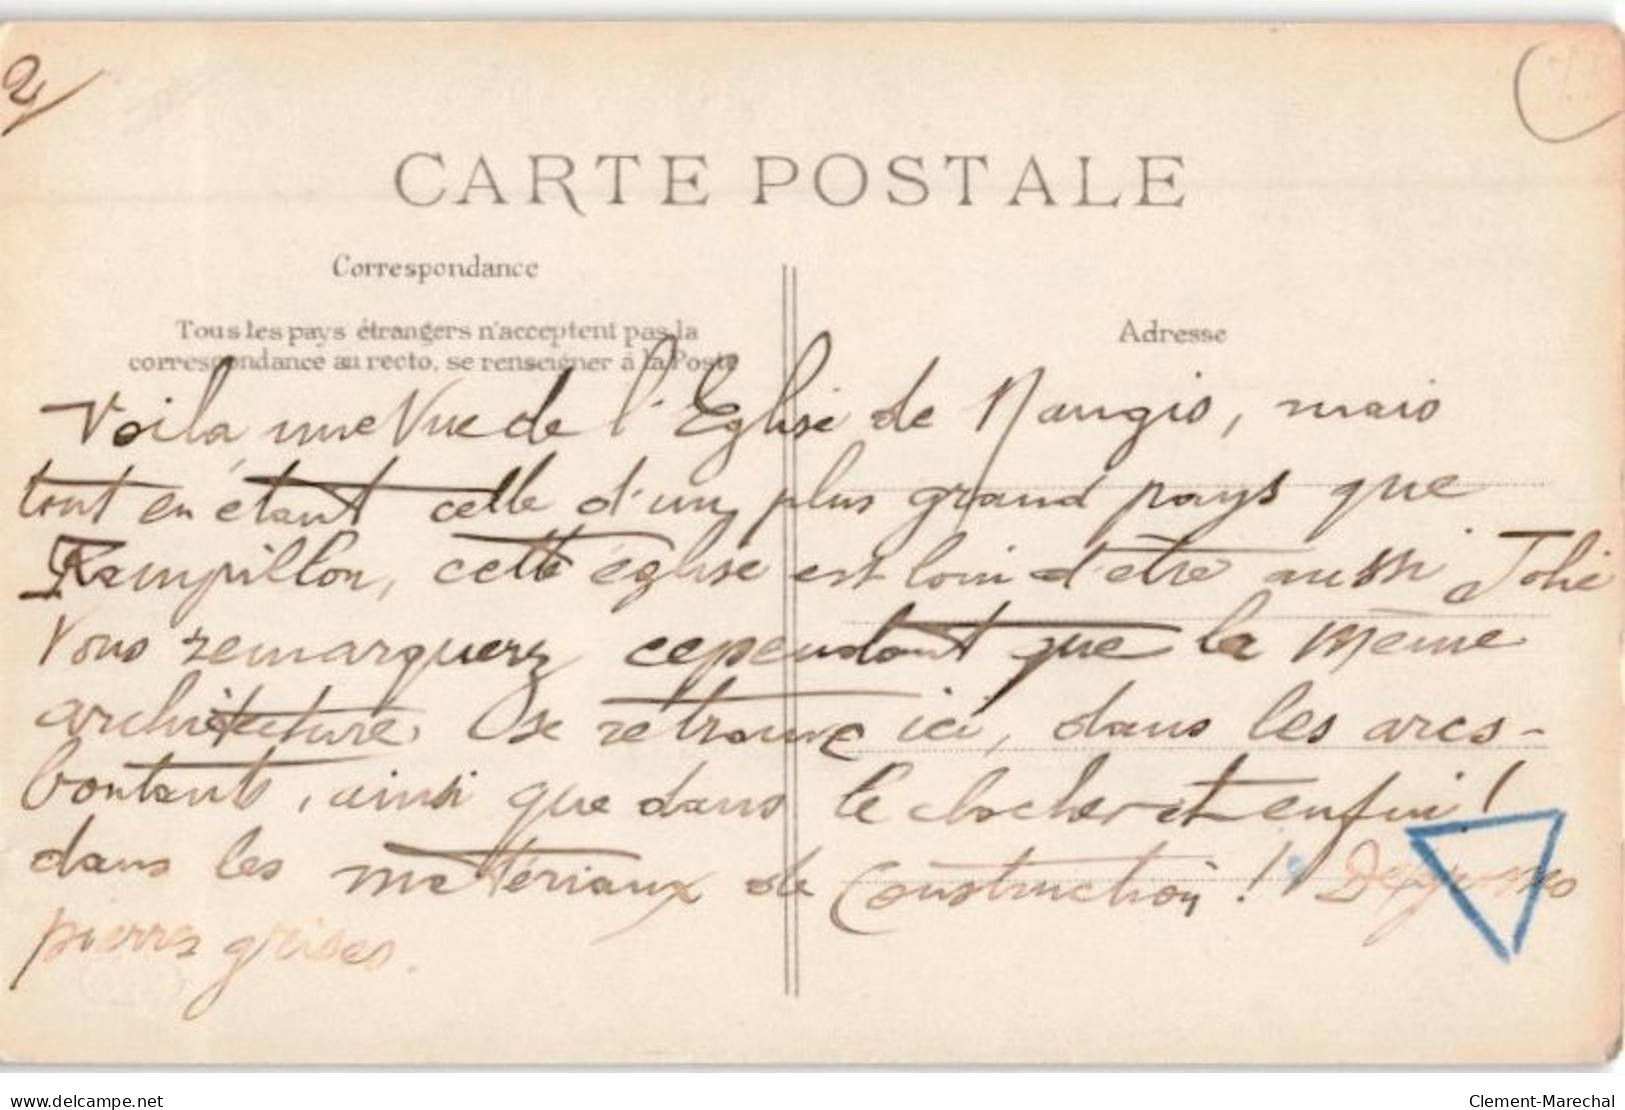 2/
CARTE POSTALE
Correspondance
Tous les pays étrangers n'acceptent pas la
correspondance au recto, se renseigner à la Poste
Adresse
Voilà une Vue de l'Eglise de Nangis, mais
tout en étant celle d'un plus grand pays que
Rampillon, cette église est loin d'être aussi Jolie
Vous remarquerez cependant que la même
architecture se retrouve ici, dans les arcs-
boutants, ainsi que dans le clocher et enfin!
dans les matériaux de Construction! De grosses
pierres grises.
www.delcampe.net
Clement-Marechal